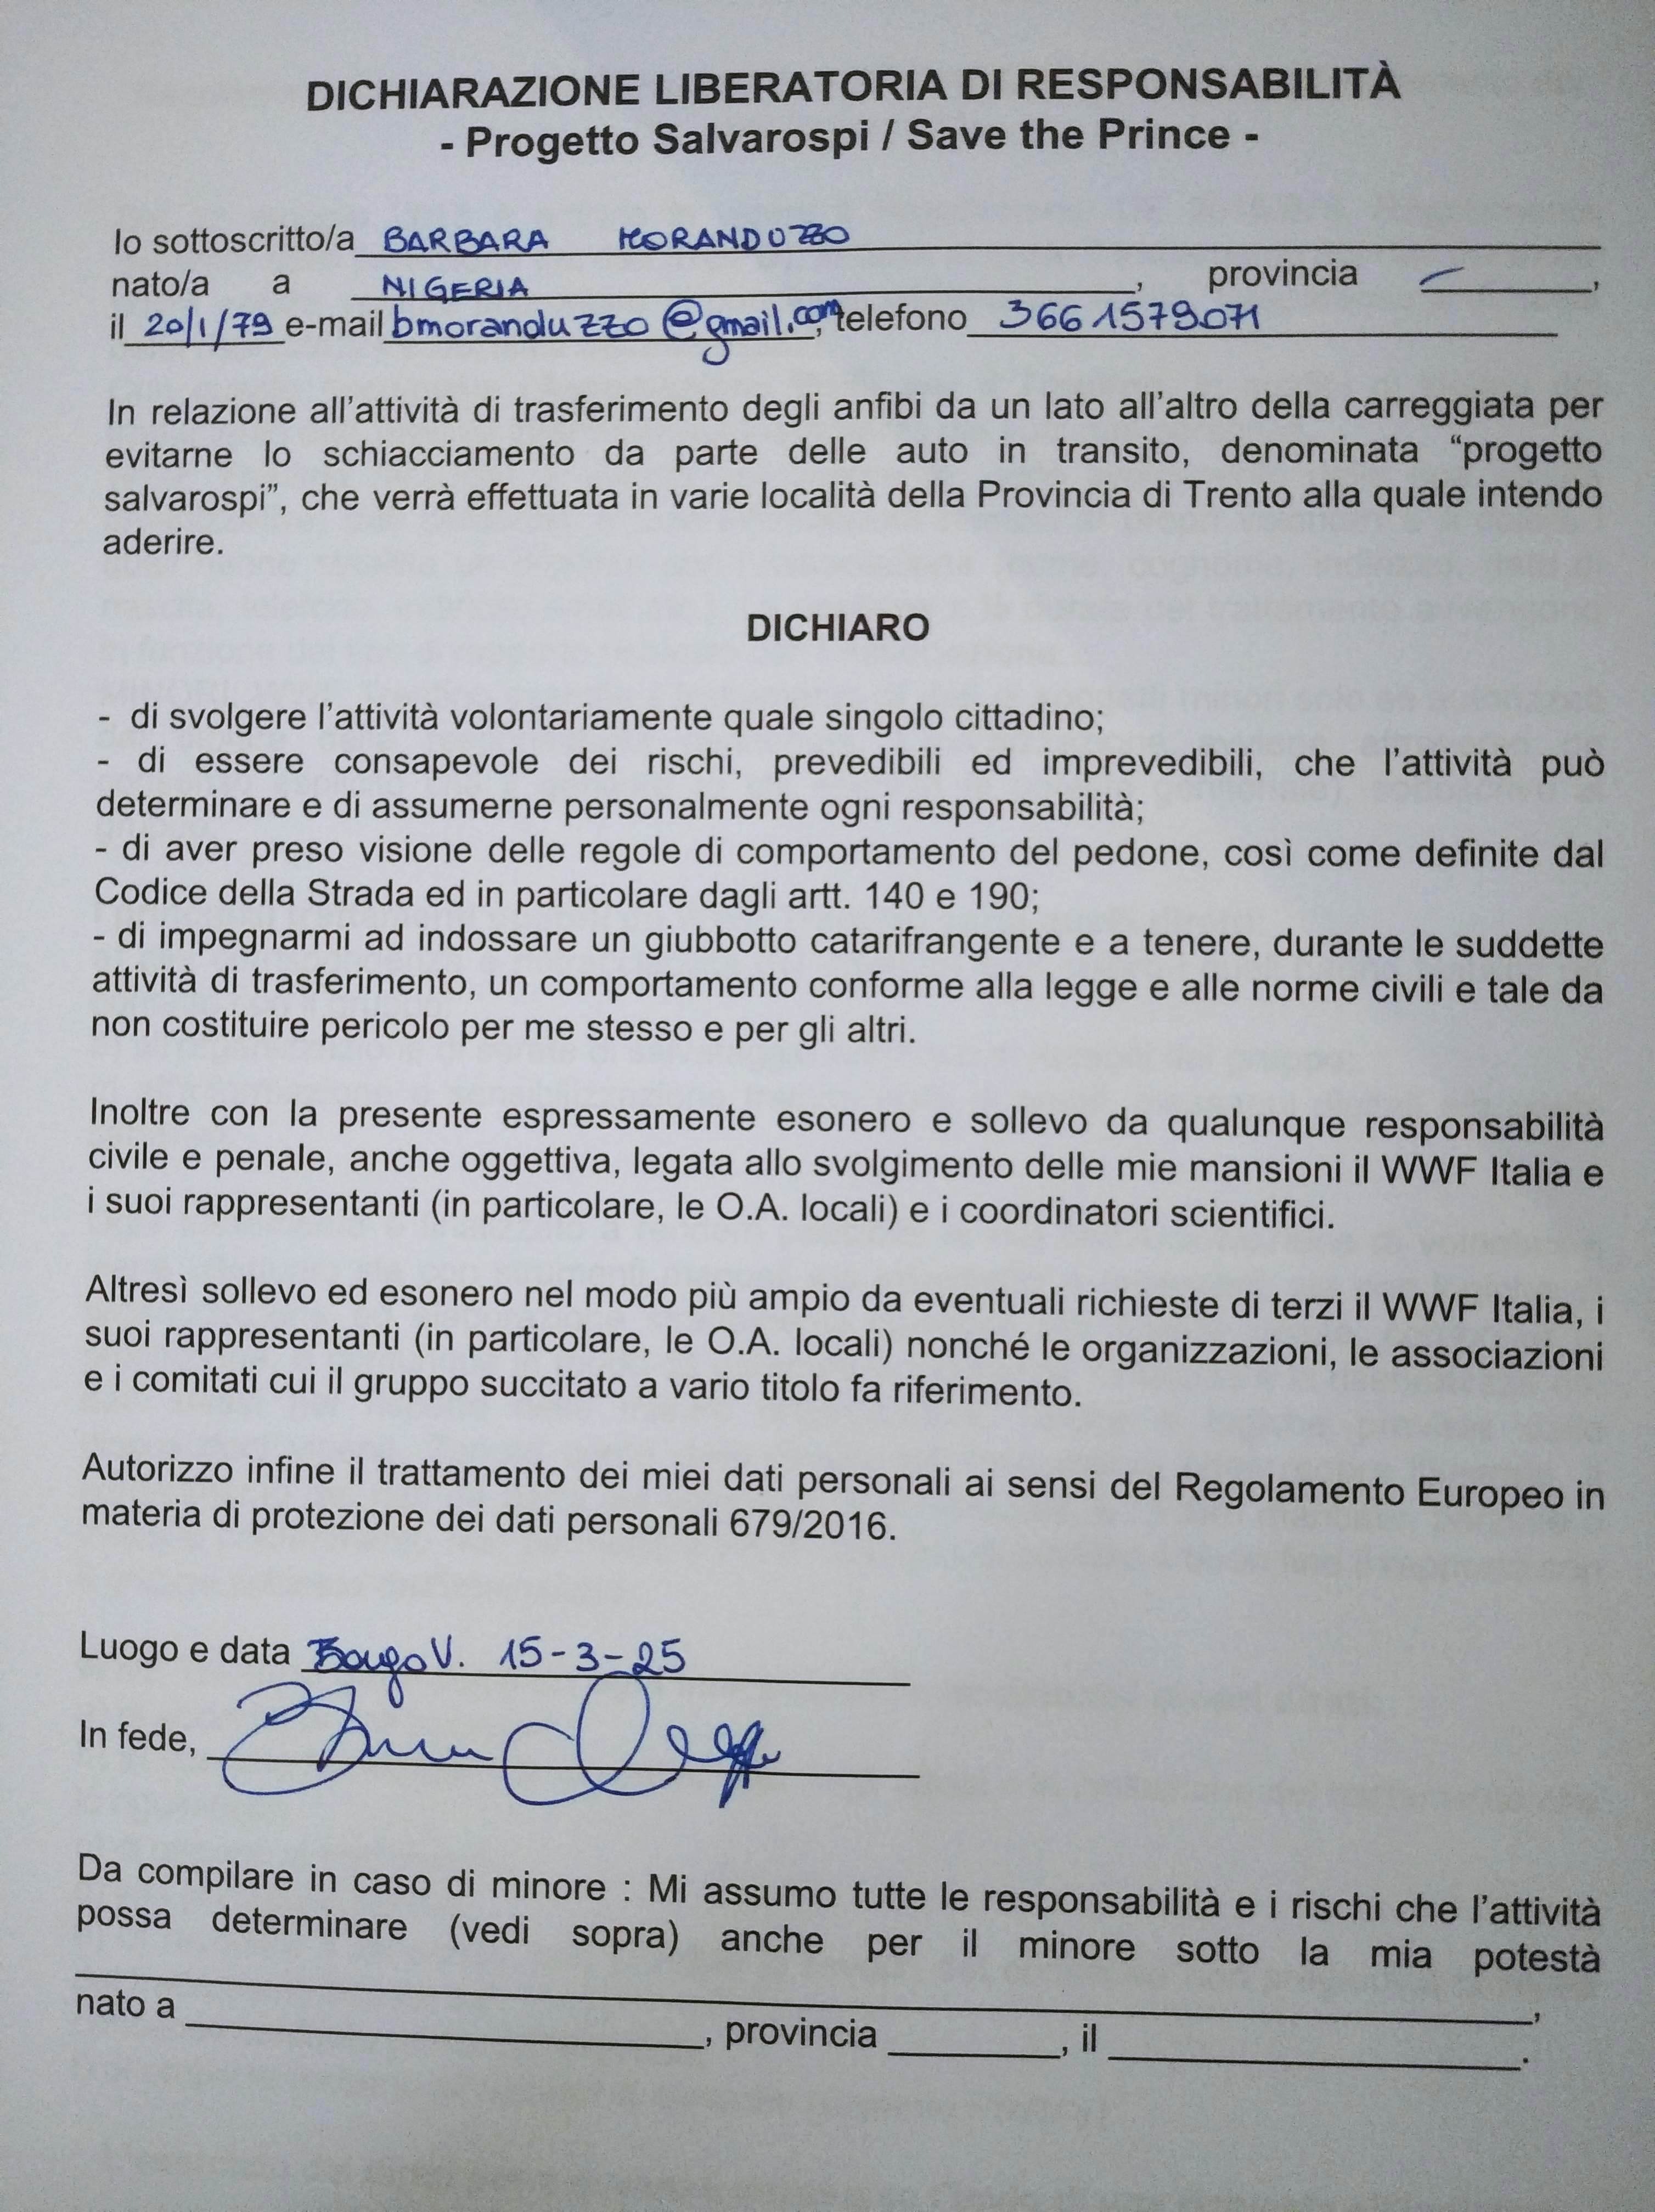 DICHIARAZIONE LIBERATORIA DI RESPONSABILITÀ
- Progetto Salvarospi / Save the Prince -
Io sottoscritto/a BARBARA MORANDUZZO
nato/a a NIGERIA, provincia –,
il 20/1/79 e-mail bmoranduzzo@gmail.com, telefono 3661579071
In relazione all'attività di trasferimento degli anfibi da un lato all'altro della carreggiata per
evitarne lo schiacciamento da parte delle auto in transito, denominata “progetto
salvarospi”, che verrà effettuata in varie località della Provincia di Trento alla quale intendo
aderire.
DICHIARO
- di svolgere l'attività volontariamente quale singolo cittadino;
- di essere consapevole dei rischi, prevedibili ed imprevedibili, che l'attività può
determinare e di assumerne personalmente ogni responsabilità;
- di aver preso visione delle regole di comportamento del pedone, così come definite dal
Codice della Strada ed in particolare dagli artt. 140 e 190;
- di impegnarmi ad indossare un giubbotto catarifrangente e a tenere, durante le suddette
attività di trasferimento, un comportamento conforme alla legge e alle norme civili e tale da
non costituire pericolo per me stesso e per gli altri.
Inoltre con la presente espressamente esonero e sollevo da qualunque responsabilità
civile e penale, anche oggettiva, legata allo svolgimento delle mie mansioni il WWF Italia e
i suoi rappresentanti (in particolare, le O.A. locali) e i coordinatori scientifici.
Altresì sollevo ed esonero nel modo più ampio da eventuali richieste di terzi il WWF Italia, i
suoi rappresentanti (in particolare, le O.A. locali) nonché le organizzazioni, le associazioni
e i comitati cui il gruppo succitato a vario titolo fa riferimento.
Autorizzo infine il trattamento dei miei dati personali ai sensi del Regolamento Europeo in
materia di protezione dei dati personali 679/2016.
Luogo e data Borgo V. 15-3-25
In fede,
Da compilare in caso di minore : Mi assumo tutte le responsabilità e i rischi che l'attività
possa determinare (vedi sopra) anche per il minore sotto la mia potestà
,
nato a , provincia , il .